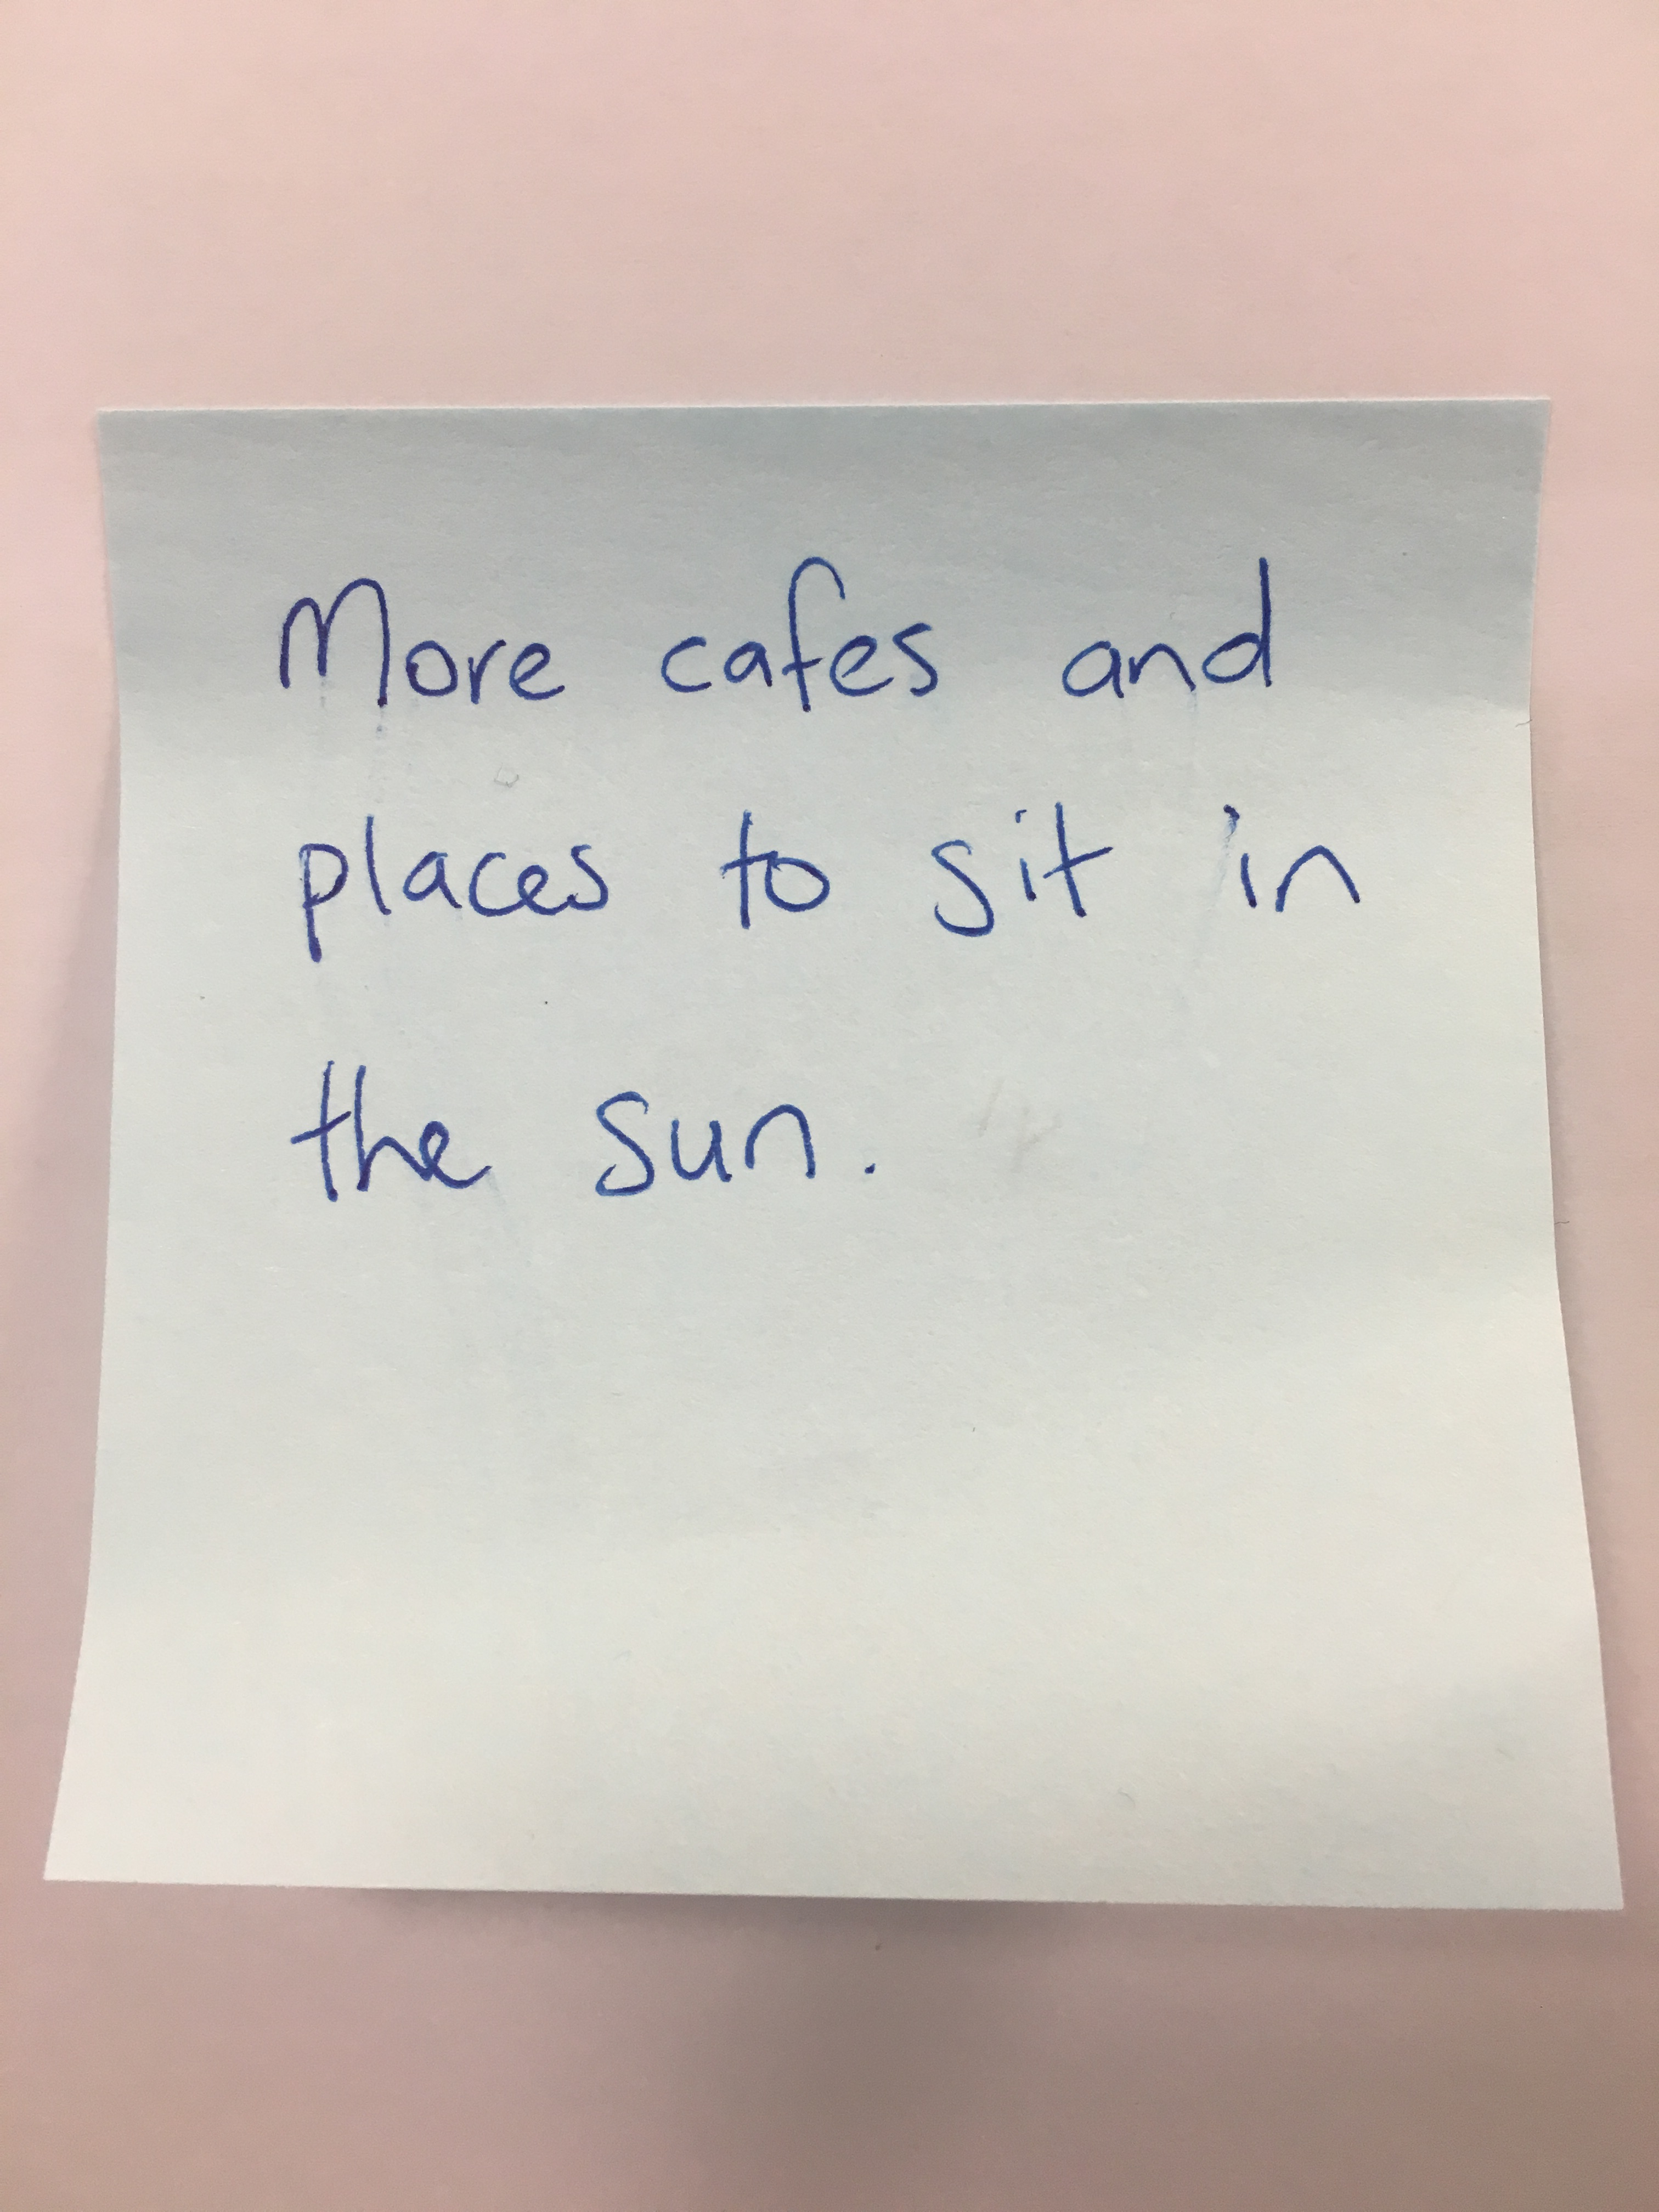 More cafes and
places to sit in
the sun.